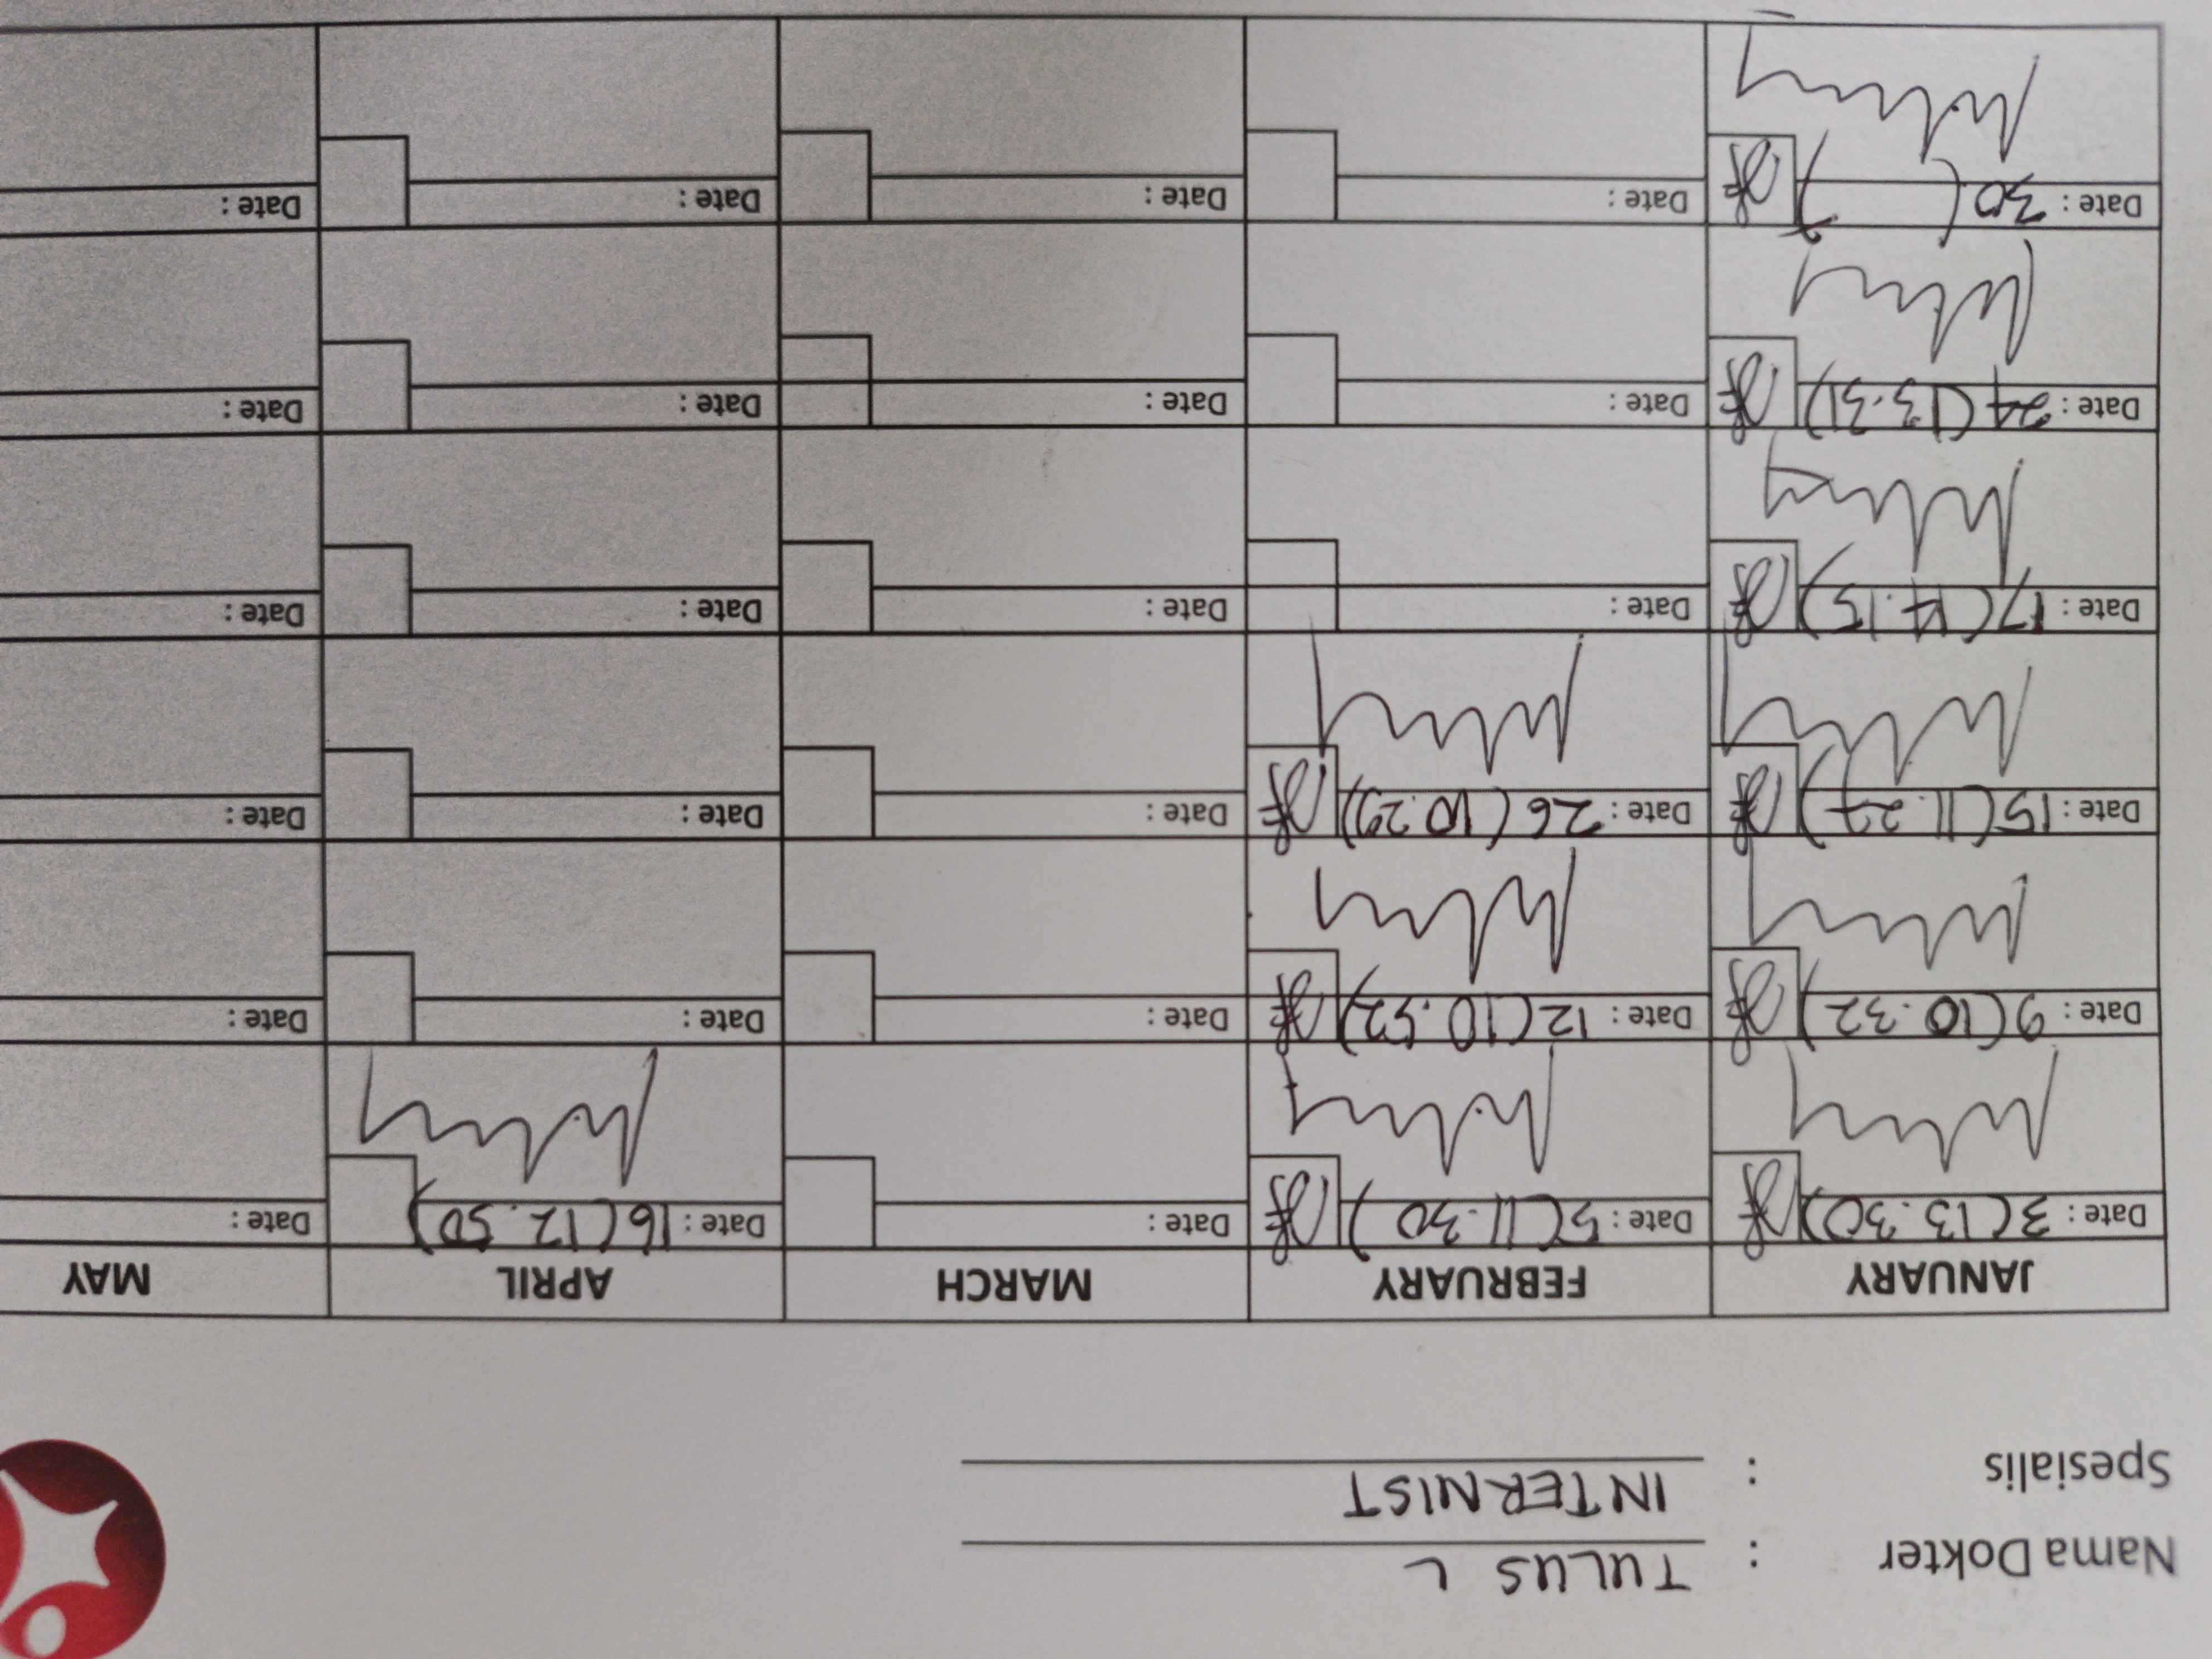 Nama Dokter : TULUS L
Spesialis : INTERNIST
JANUARY FEBRUARY MARCH APRIL MAY
Date : 3 (13.30) Date : 5 (11.30) Date : Date : 16 (12.50) Date :
Date : 9 (10.32) Date : 12 (10.52) Date : Date : Date :
Date : 15 (11.27) Date : 26 (10.29) Date : Date : Date :
Date : 17 (14.15) Date : Date : Date : Date :
Date : 24 (13.31) Date : Date : Date : Date :
Date : 30 ( ) Date : Date : Date : Date :